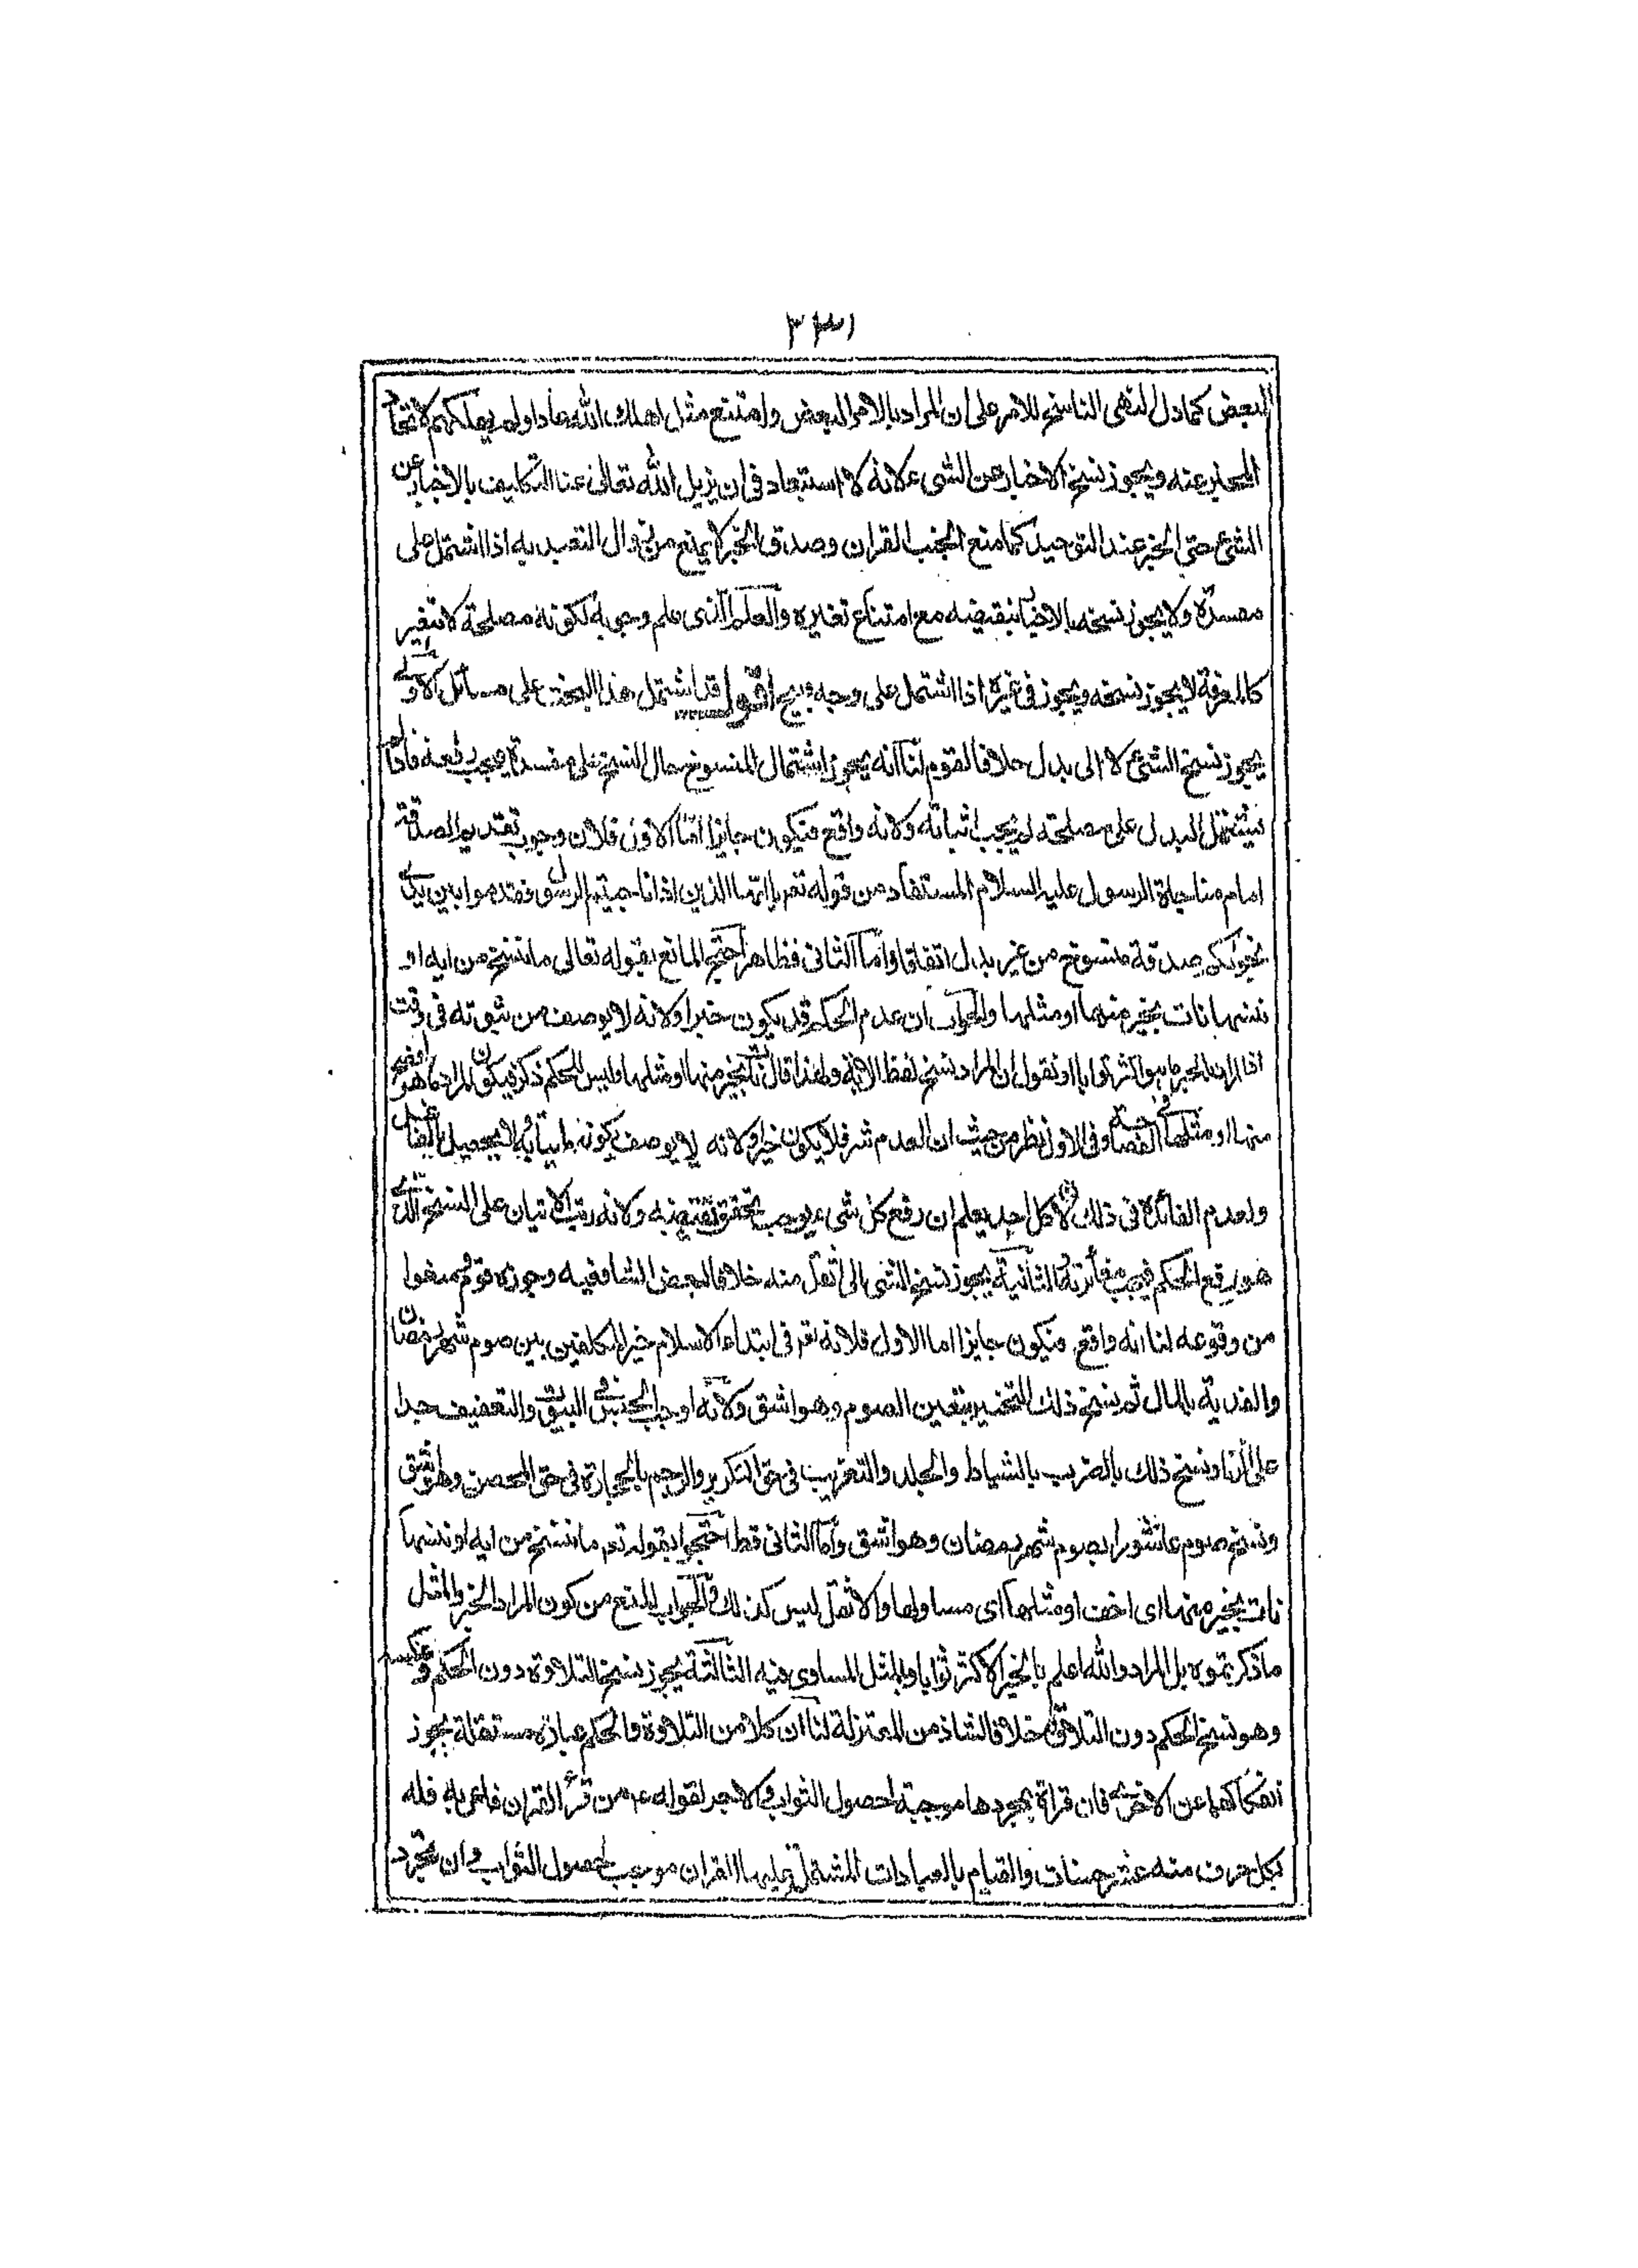 ٣٣١
البعض كما دل النهى الناسخ للامر على ان المراد بالامر البعض وامتنع مثل اهلك الله عادا ولم يهلكهم لاتحاد
المخبر عنه ويجوز نسخ الاخبار عن الشىء لانه لا استبعاد فى ان يزيل الله تعالى عنا التكليف بالاخبار عن
الشئ حتى الخبر عند التوحيد كما منع الجنب القران وصدق الخبر لا يمنع من زوال التعبد به اذا اشتمل على
مفسدة ولا يجوز نسخه بالاخبار بنقيضه مع امتناع تغيره والعلم الذى علم وجوبه لكونه مصلحة لا تتغير
كالمعرفة لا يجوز نسخه ويجوز فى غيره اذا اشتمل على وجه قبيح اقول قد اشتمل هذا البحث على مسائل الاولى
يجوز نسخ الشئ لا الى بدل خلافا لقوم لنا انه يجوز اشتمال المنسوخ حال النسخ على مفسدة فيجب رفعه فاذا لم
يشتمل البدل على مصلحة لم يجب اثباته ولانه واقع فيكون جايزا اما الاول فلان وجوب تقديم الصدقة
امام مناجاة الرسول عليه السلام المستفاد من قوله تعر يا ايها الذين اذا ناجيتم الرسول فقدموا بين يدى
نجويكم صدقة منسوخ من غير بدل اتفاقا واما الثانى فظاهر احتج المانع بقوله تعالى ما ننسخ من ايه او
ننسها نات بخير منها او مثلها والجواب ان عدم الحكم قد يكون خيرا ولانه لا يوصف من ثبوته فى وقت
اذا المراد بالخير ما هو اكثر ثوابا او نقول ان المراد نسخ لفظ الاية ولهذا قال نات بخير منها او مثلها وليس للحكم ذكر فيكون المراد ما هو افصح
منها او مثلها فى الفصاحة وفى الاول نظر من حيث ان العدم شر فلا يكون خيرا ولانه لا يوصف بكونه ماتيا به لا يحصل بالفعل
ولعدم الفائدة فى ذلك لان كل احد يعلم ان رفع كل شىء يوجب تحقق نقيضه ولانه رتب الاتيان على النسخ الذى
هو رفع الحكم فيجب مغائرته له الثانية يجوز نسخ الشى الى اثقل منه خلافا لبعض الشافعيه وجوزه قوم ومنعوا
من وقوعه لنا انه واقع فيكون جايزا اما الاول فلانه تعر فى ابتداء الاسلام خير المكلفين بين صوم شهر رمضان
والفدية بالمال ثم نسخ ذلك التخيير بتعيين الصوم وهو اشق ولانه اوجب الحبس فى البيوت والتعنيف حدا
على الزنا ونسخ ذلك بالضرب بالسياط والجلد والتغريب فى حق البكر والرجم بالحجارة فى حق المحصن وهو اشق
ونسخ صوم عاشورا بصوم شهر رمضان وهو اشق واما الثانى فظ احتجوا بقوله تعر ما ننسخ من ايه او ننسها
نات بخير منها اى اخف او مثلها اى مساو لها والاثقل ليس كذلك والجواب المنع من كون المراد بالخير والمثل
ما ذكرتموه بل المراد والله اعلم بالخير الاكثر ثوابا والمثل المساوى فيه الثالثة يجوز نسخ التلاوة دون الحكم وعكسه
وهو نسخ الحكم دون التلاوة خلافا لشاذ من المعتزلة لنا ان كلا من التلاوة والحكم عبادة مستقلة يجوز
انفكاكهما عن الاخرى فان قراة بمجردها موجبة لحصول الثواب والاجر لقوله عم من قرأ القران فاعربه فله
بكل حرف منه عشر حسنات والقيام بالعبادات المشتمل عليها القران موجب لحصول الثواب وان تجرد